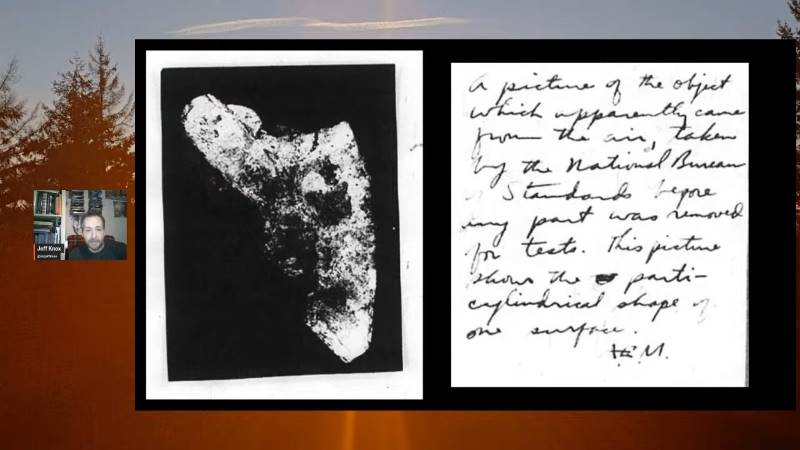 Jeff Knox
A picture of the object
which apparently came
from the air, taken
by the National Bureau
of Standards before
any part was removed
for tests. This picture
shows the parti-
cylindrical shape of
one surface.
M.